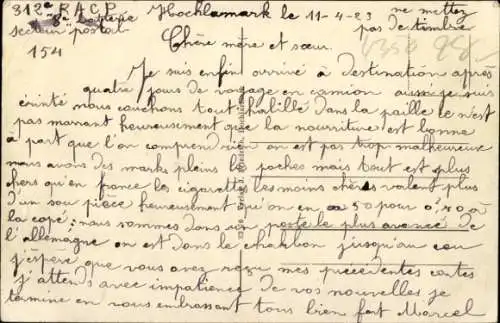 312e R A C P Hochlamark le 11-4-23 ne mettez
8e batterie pas de timbre
secteur postal
154
Chère mère et sœur.
Je suis enfin arrivé à destination après
quatre jours de voyage en camion aussi je suis
éreinté nous couchons tout habillé dans la paille ce n'est
pas marrant heureusement que la nourriture est bonne
à part que l'on comprend rien on est pas trop malheureux
nous avons des marks pleins les poches mais tout est plus
chers qu'en france les cigarettes les moins chères valent plus
d'un sou pièce heureusement qu'on en a 50 pour 0f40 à
la copé; nous sommes dans un poste le plus avancé de
l'allemagne on est dans le charbon jusqu'au cou
j'espère que vous avez reçu mes précédentes cartes
j'attends avec impatience de vos nouvelles je
termine en vous embrassant tous bien fort Marcel